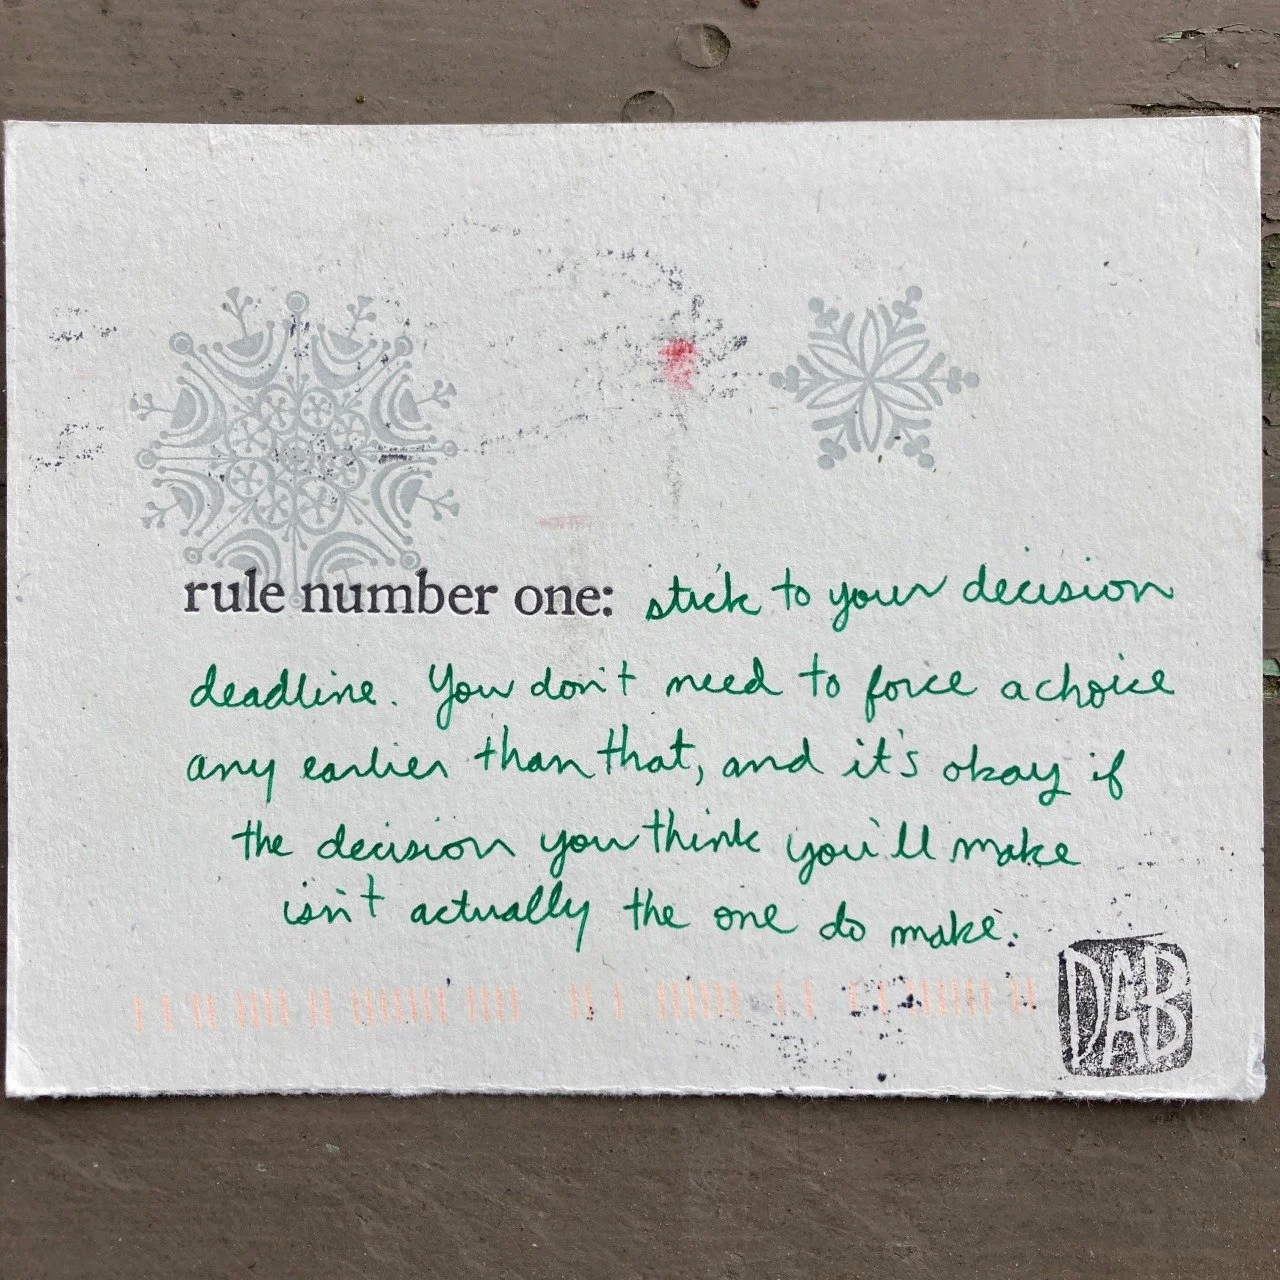 rule number one: stick to your decision
deadline. You don't need to force a choice
any earlier than that, and it's okay if
the decision you think you'll make
isn't actually the one do make.
DAB